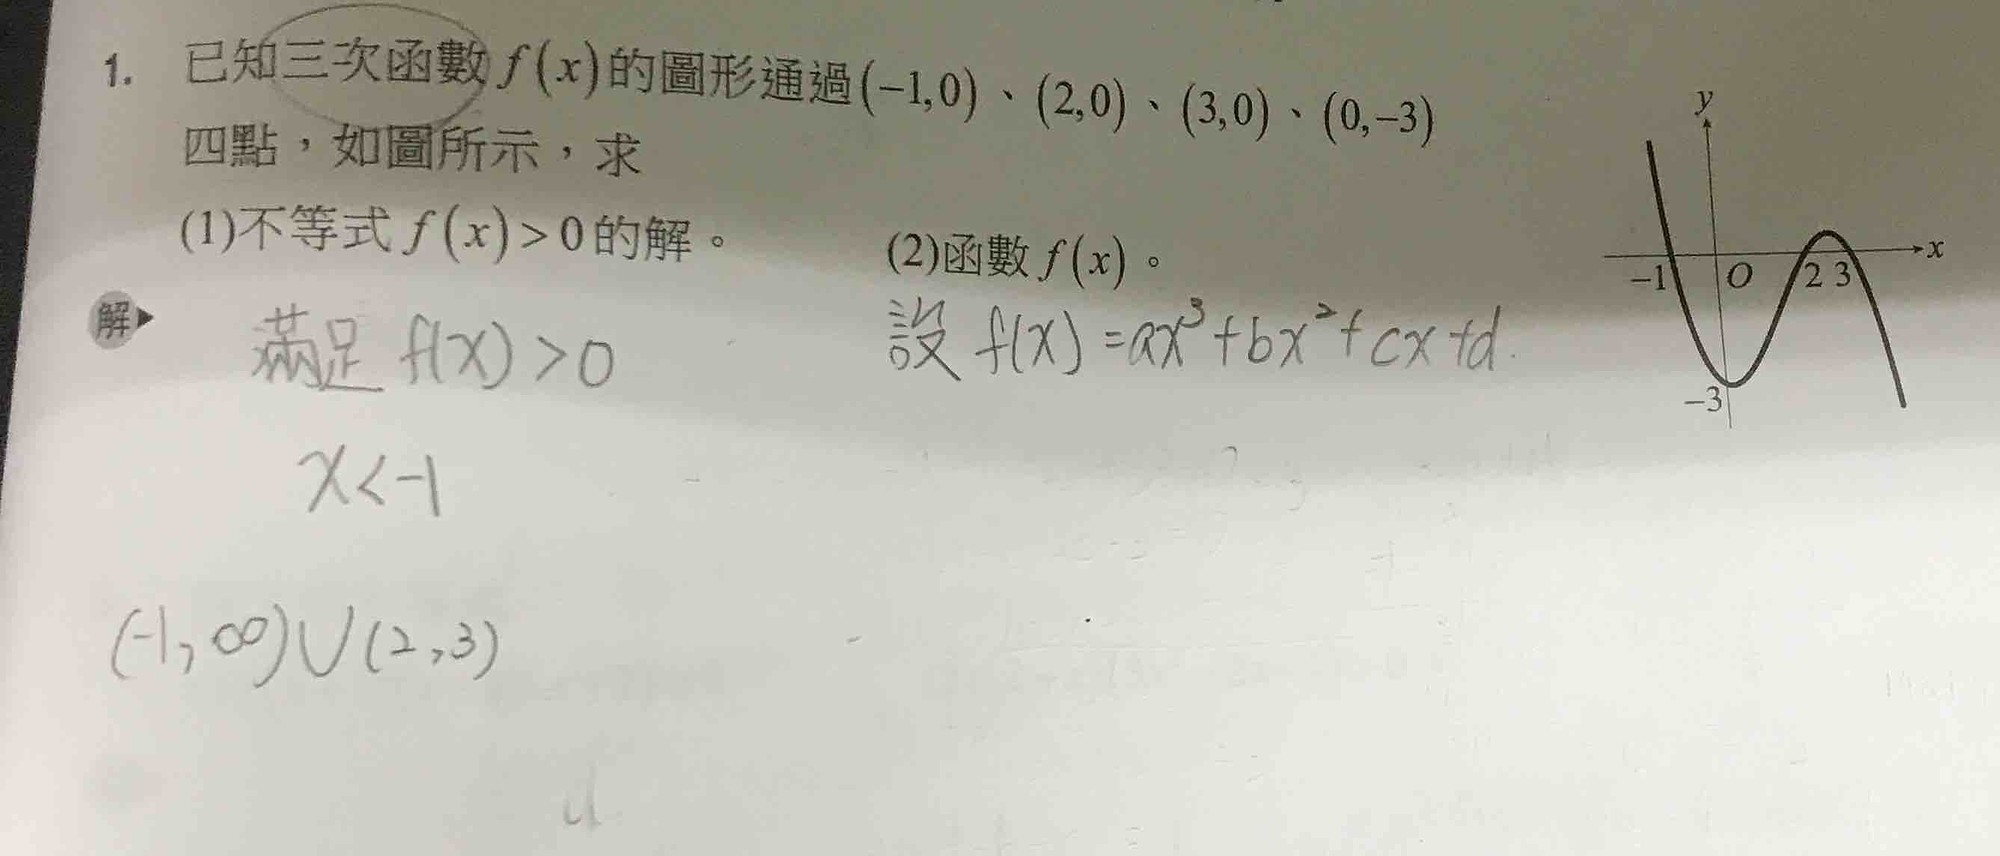 1. 已知三次函數 f(x) 的圖形通過 (−1,0)、(2,0)、(3,0)、(0,−3)
四點，如圖所示，求
(1)不等式 f(x)>0 的解。 (2)函數 f(x)。
解 滿足 f(x)>0 設 f(x)=ax³+bx²+cx+d.
x<-1
(-1, ∞)∪(2,3)
y
x
−1 O 2 3
−3